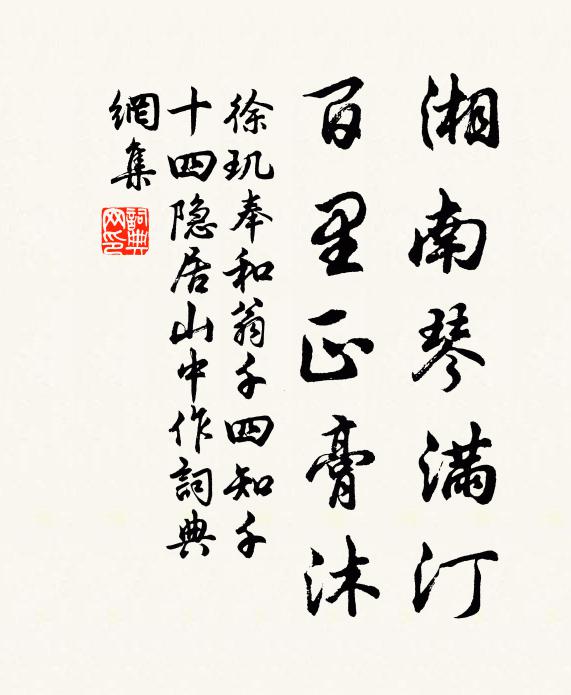 湘南琴滿汀
百里正膏沐
徐玑奉和翁千四知千
十四隐居山中作詞典
網集
詞典网印